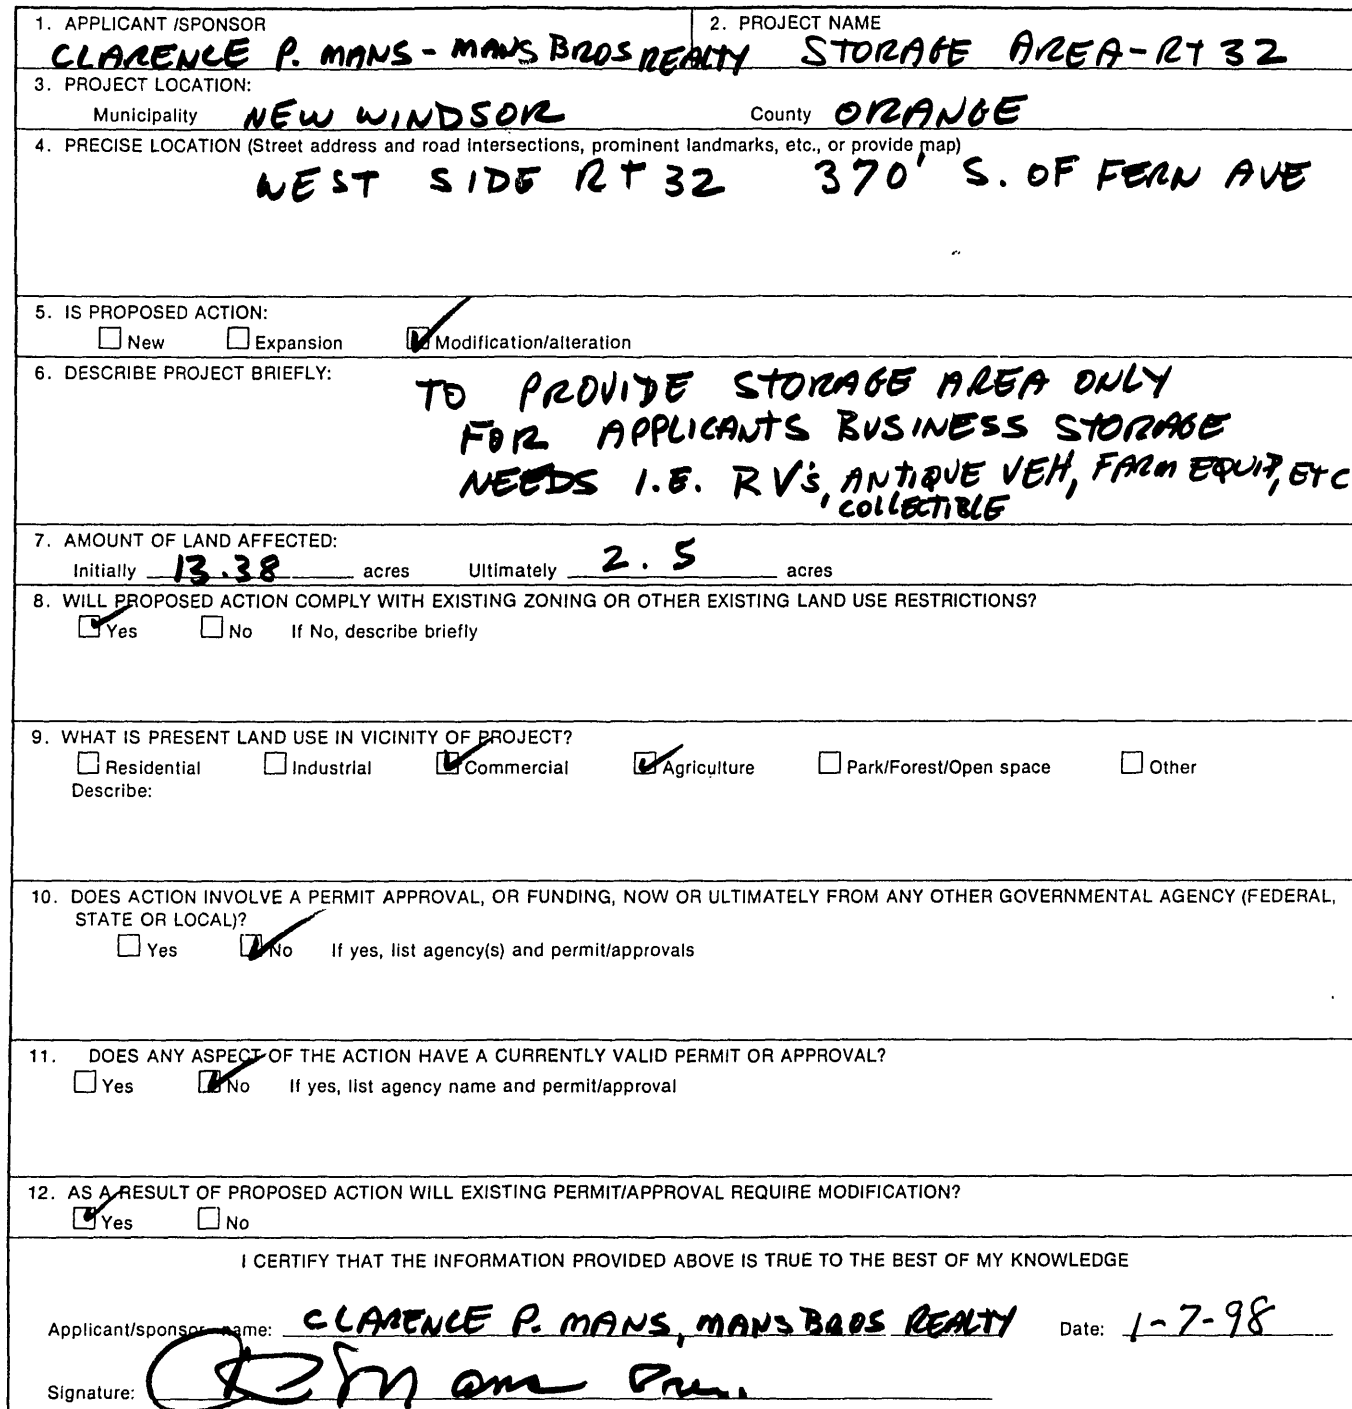 1. APPLICANT /SPONSOR
CLARENCE P. MANS - MANS BROS REALTY
2. PROJECT NAME
STORAGE AREA - RT 32
3. PROJECT LOCATION:
Municipality NEW WINDSOR County ORANGE
4. PRECISE LOCATION (Street address and road intersections, prominent landmarks, etc., or provide map)
WEST SIDE RT 32 370' S. OF FERN AVE
5. IS PROPOSED ACTION:
☐ New ☐ Expansion ☑ Modification/alteration
6. DESCRIBE PROJECT BRIEFLY:
TO PROVIDE STORAGE AREA ONLY
FOR APPLICANTS BUSINESS STORAGE
NEEDS I.E. RV's, ANTIQUE VEH, FARM EQUIP, ETC
, COLLECTIBLE
7. AMOUNT OF LAND AFFECTED:
Initially 13.38 acres Ultimately 2.5 acres
8. WILL PROPOSED ACTION COMPLY WITH EXISTING ZONING OR OTHER EXISTING LAND USE RESTRICTIONS?
☑ Yes ☐ No If No, describe briefly
9. WHAT IS PRESENT LAND USE IN VICINITY OF PROJECT?
☐ Residential ☐ Industrial ☑ Commercial ☑ Agriculture ☐ Park/Forest/Open space ☐ Other
Describe:
10. DOES ACTION INVOLVE A PERMIT APPROVAL, OR FUNDING, NOW OR ULTIMATELY FROM ANY OTHER GOVERNMENTAL AGENCY (FEDERAL,
STATE OR LOCAL)?
☐ Yes ☑ No If yes, list agency(s) and permit/approvals
11. DOES ANY ASPECT OF THE ACTION HAVE A CURRENTLY VALID PERMIT OR APPROVAL?
☐ Yes ☑ No If yes, list agency name and permit/approval
12. AS A RESULT OF PROPOSED ACTION WILL EXISTING PERMIT/APPROVAL REQUIRE MODIFICATION?
☑ Yes ☐ No
I CERTIFY THAT THE INFORMATION PROVIDED ABOVE IS TRUE TO THE BEST OF MY KNOWLEDGE
Applicant/sponsor name: CLARENCE P. MANS, MANS BROS REALTY Date: 1-7-98
Signature: Mans Pres.